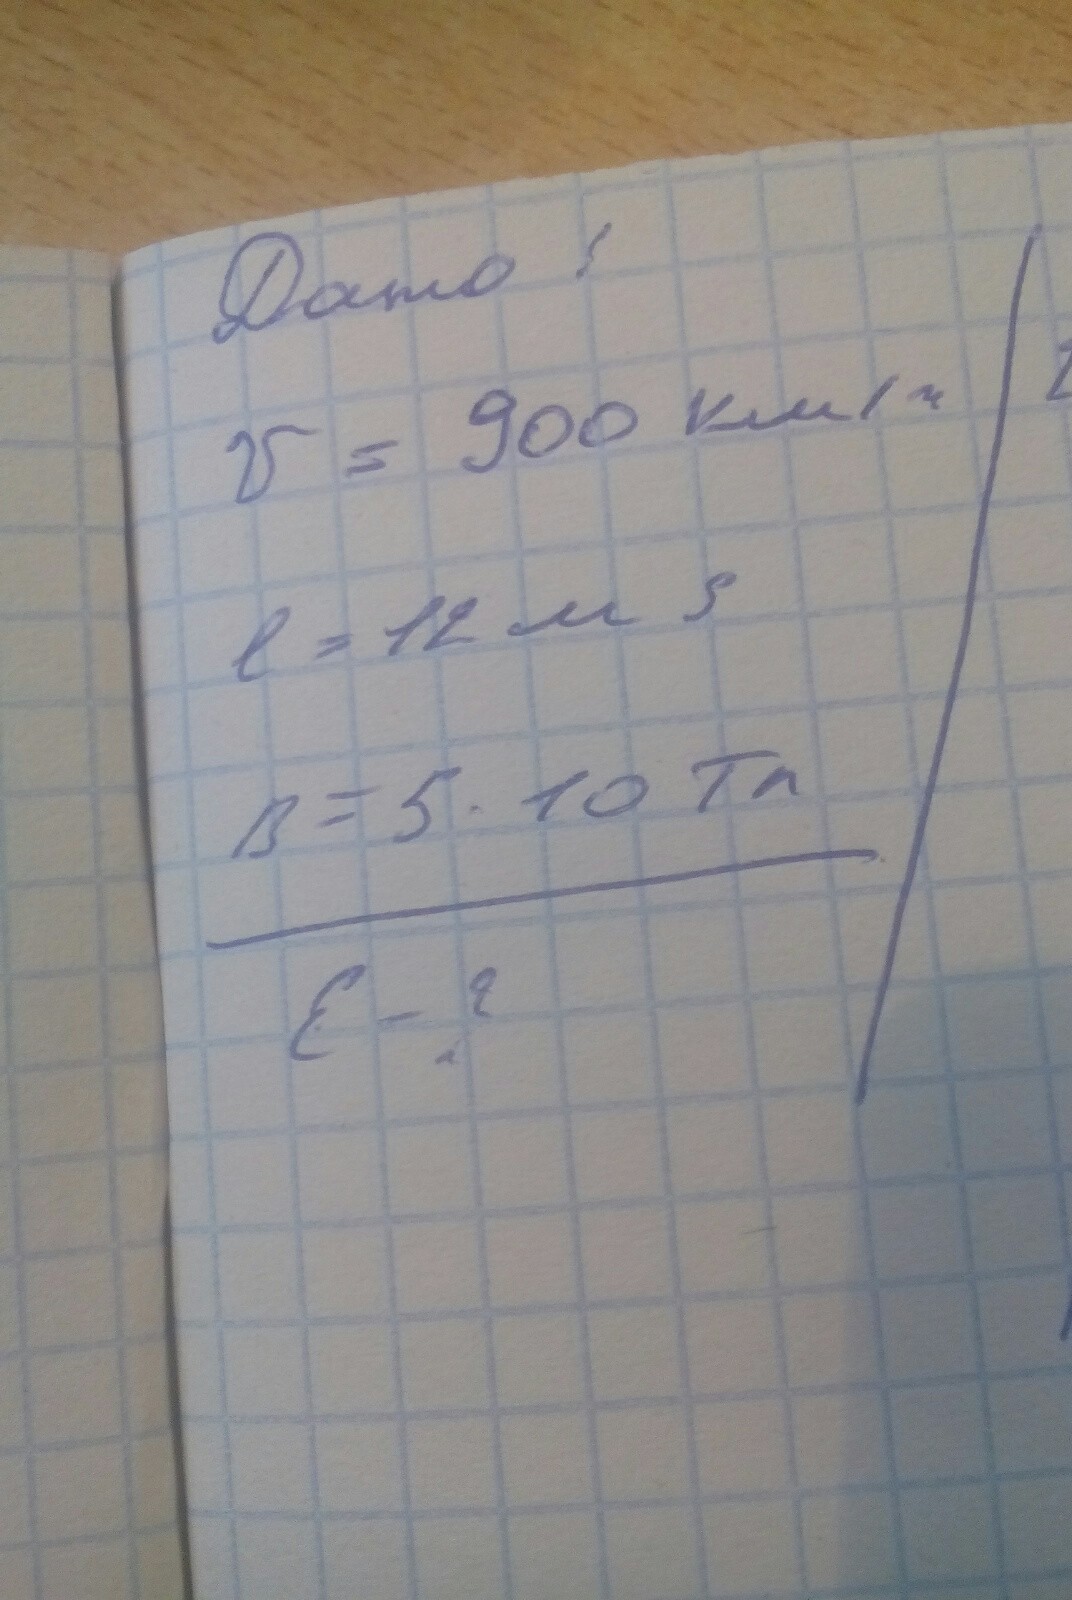 Дано:
V = 900 км/ч
l = 12 м
B = 5 · 10 Тл
Ɛ - ?